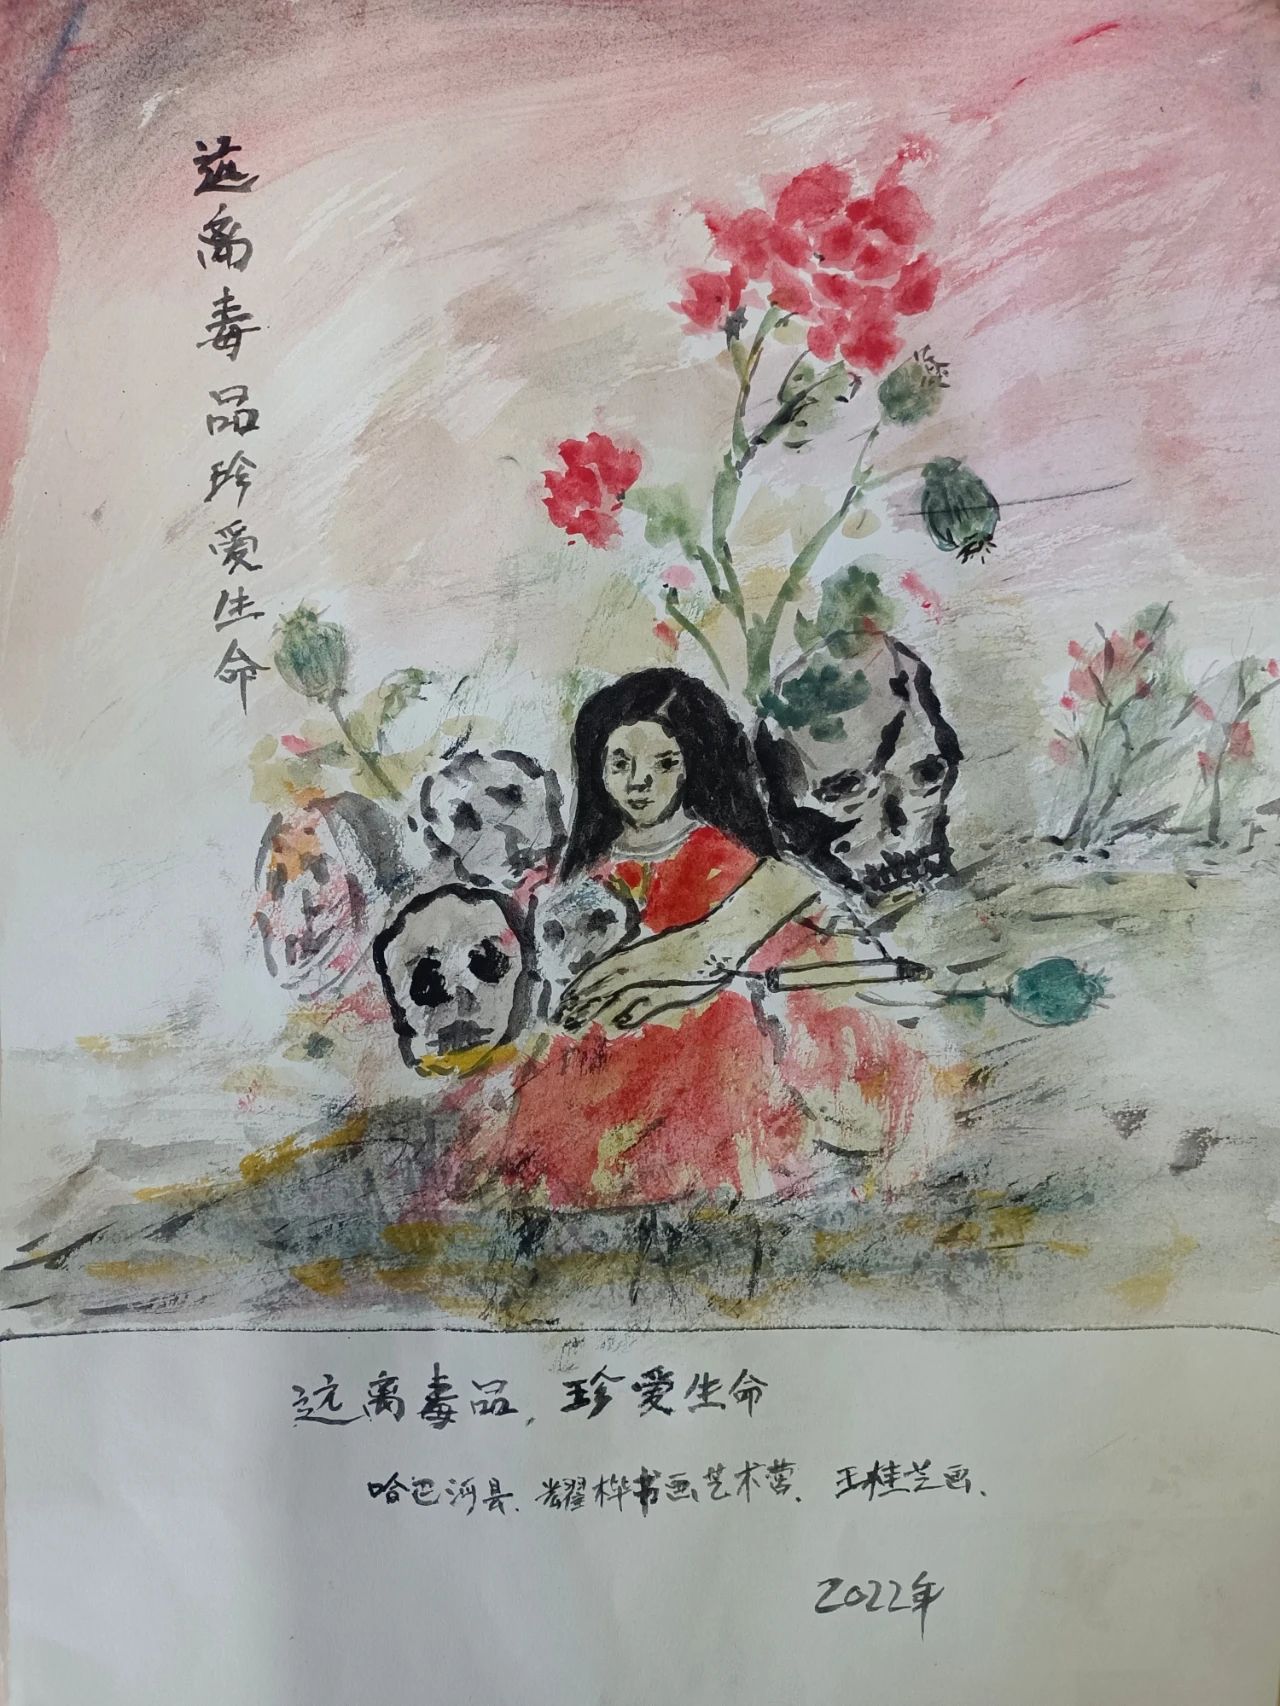 远离毒品珍爱生命
远离毒品,珍爱生命
哈巴河县.耀桦书画艺术营.王桂芝画.
2022年